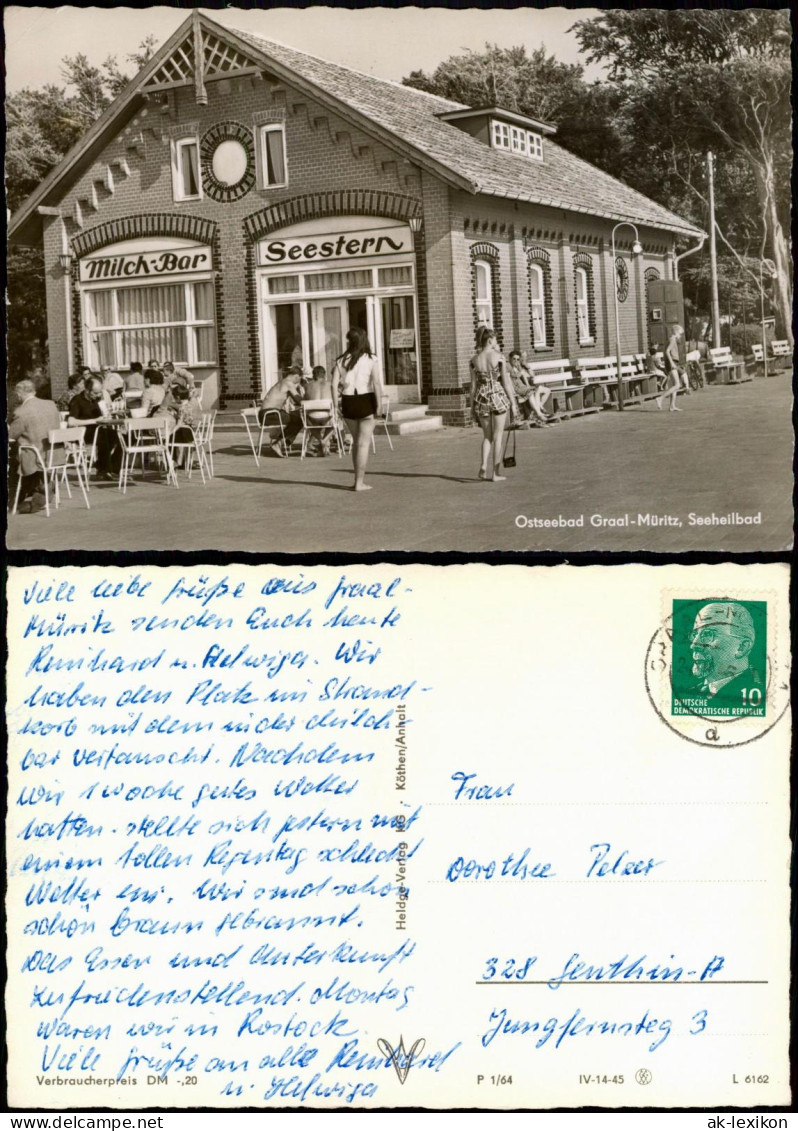 Milch-Bar
Seestern
Ostseebad Graal-Müritz, Seeheilbad
Viele liebe Grüße aus Graal-
Müritz senden Euch heute
Reinhard u. Helwiga. Wir
haben den Platz im Strand-
korb mit dem in der Milch-
bar vertauscht. Nachdem
wir 1 Woche gutes Wetter
hatten. stellte sich gestern mit
einem tollen Regentag schlecht
Wetter ein. Wir sind schon
schön braun gebrannt.
Das Essen und Unterkunft
zufriedenstellend. Montag
waren wir in Rostock.
Viele Grüße an alle Reinhard
u. Helwiga
Verbraucherpreis DM -,20
Heldge-Verlag KG · Köthen/Anhalt
DEUTSCHE
DEMOKRATISCHE REPUBLIK
10
d
Frau
Dorothee Pelzer
328 Genthin-A
Jungfernsteg 3
P 1/64
IV-14-45
L 6162
ak-lexikon